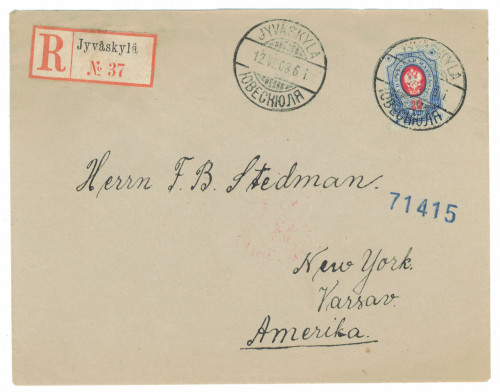 R
Jyväskylä
№ 37
JYVÄSKYLÄ
12.VI.03.6 i
ЮВЕСКЮЛЯ
JYVÄSKYLÄ
ЮВЕСКЮЛЯ
Herrn F. B. Stedman.
71415
New York.
Varsav.
Amerika.